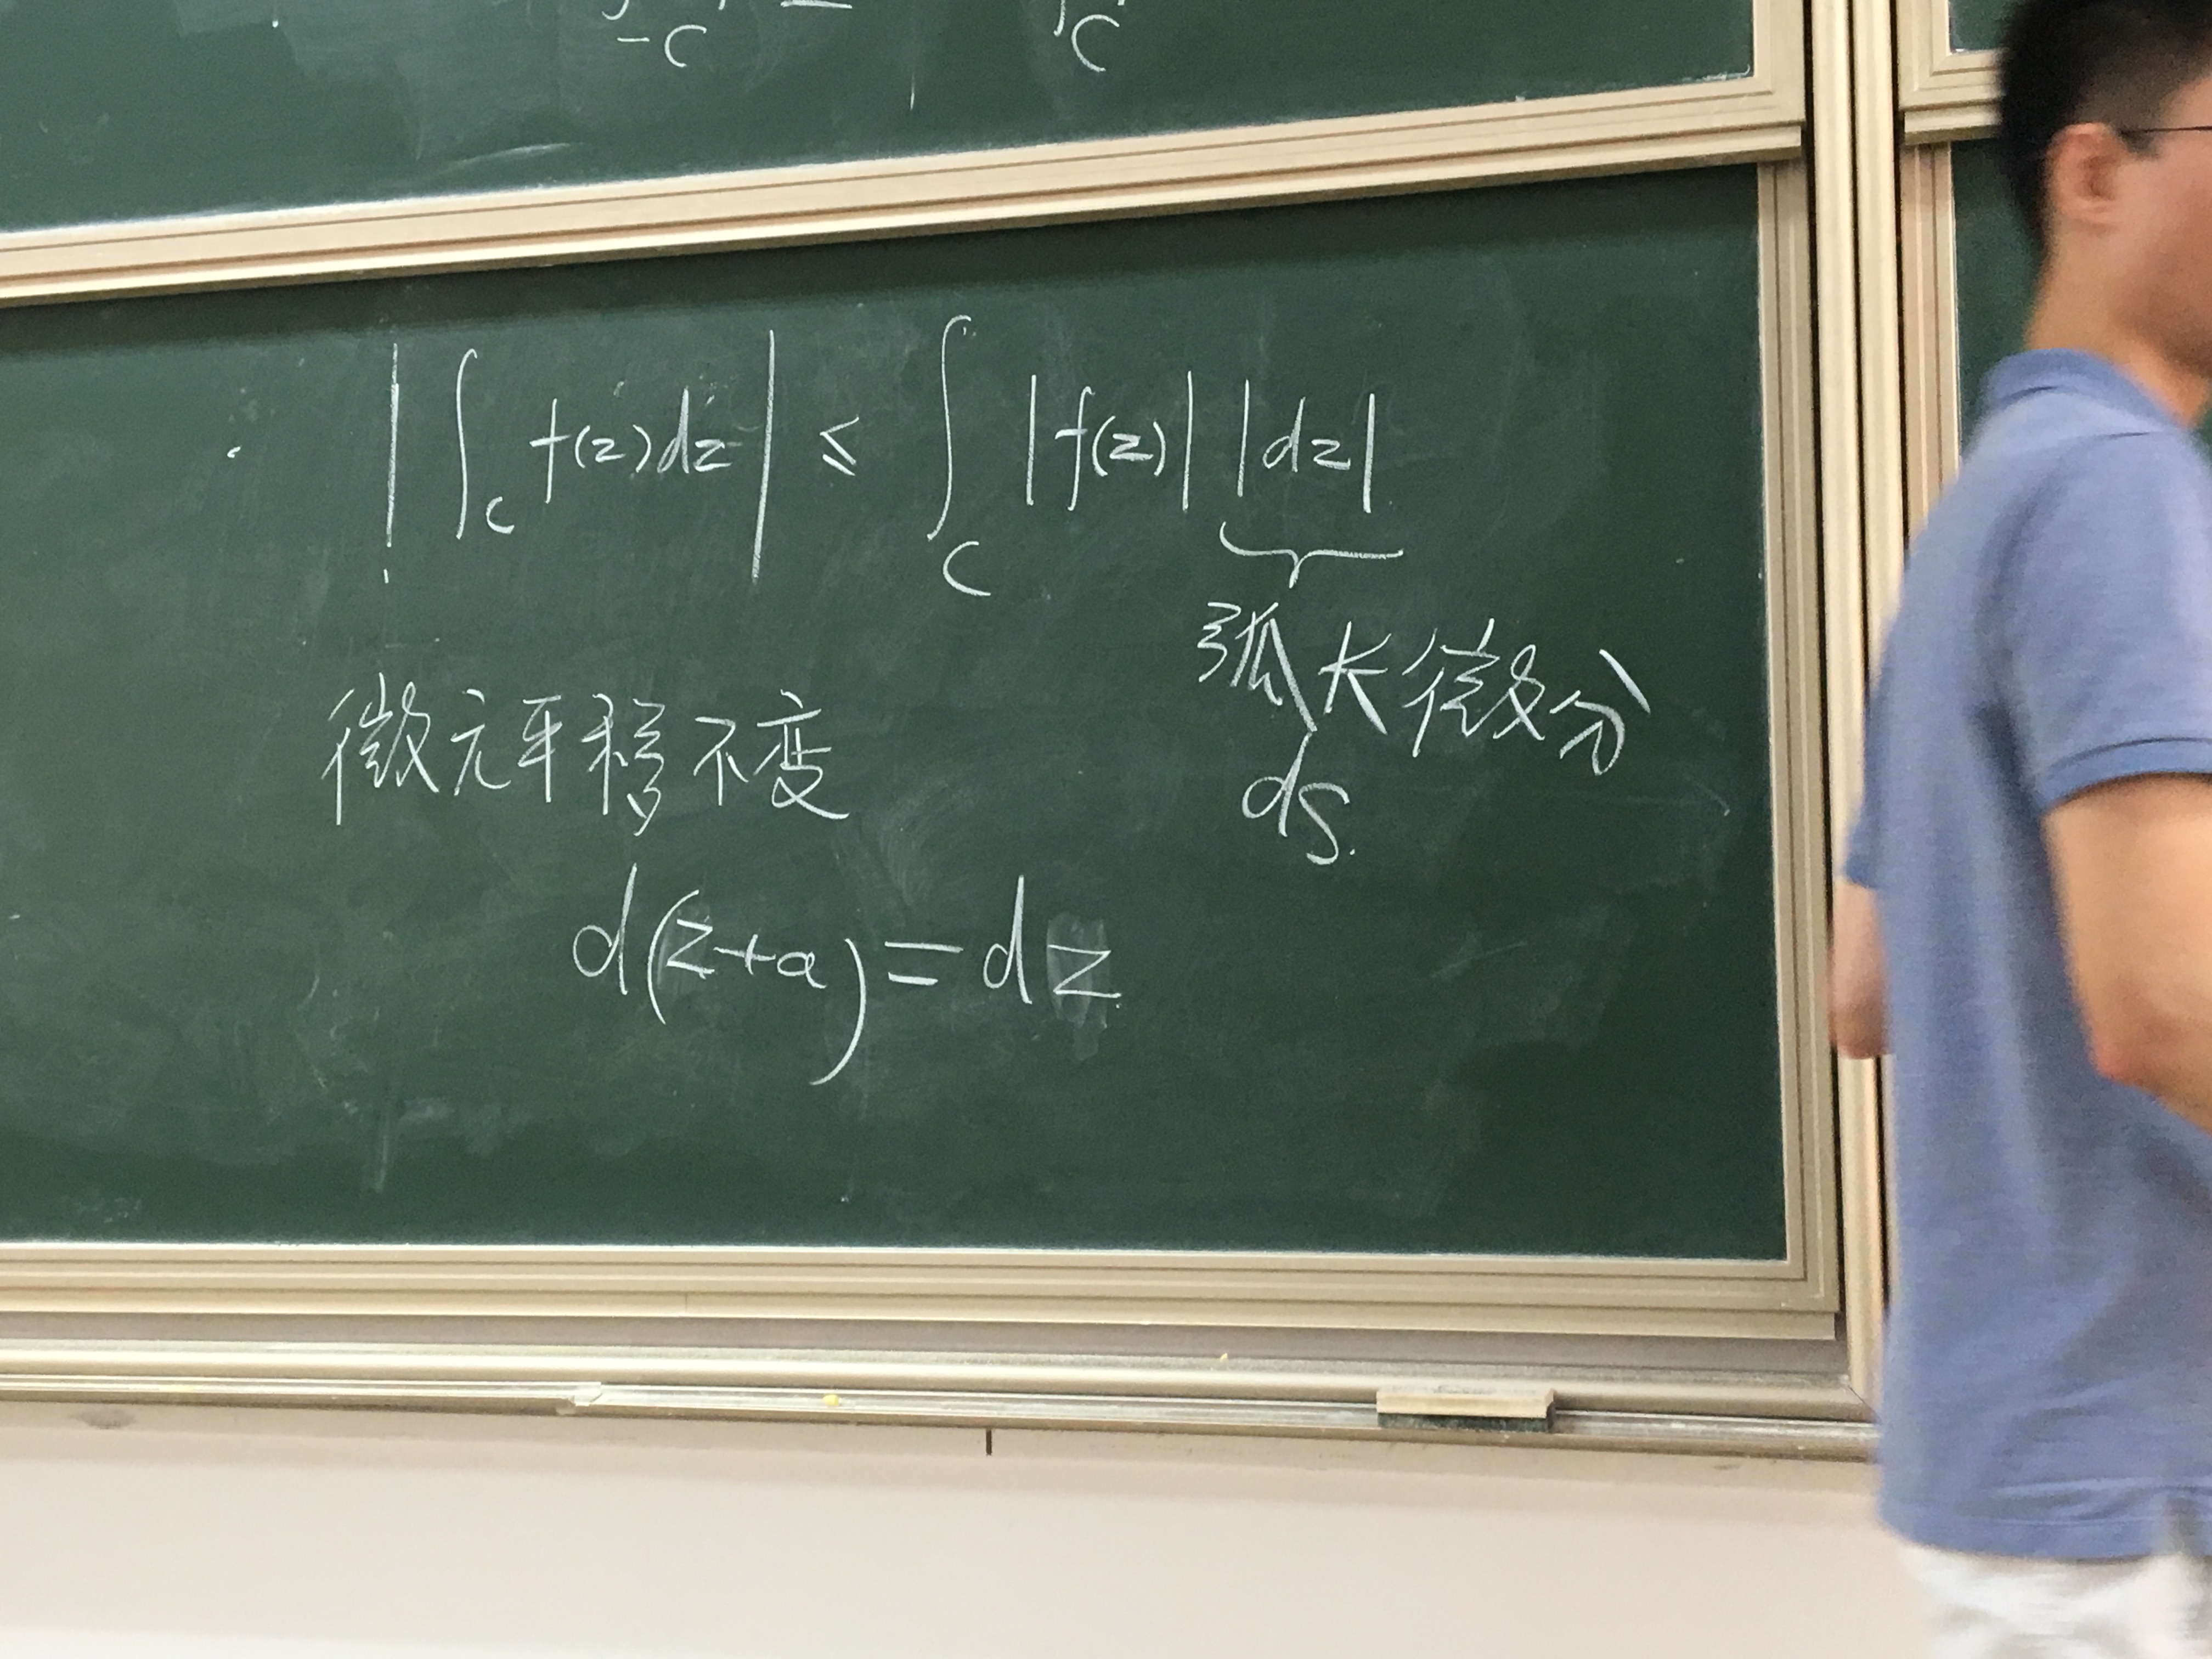 -C C
| ∫_C f(z)dz | ≤ ∫_C |f(z)| |dz|
弧长微分
微元平移不变
ds.
d(z+a)=dz